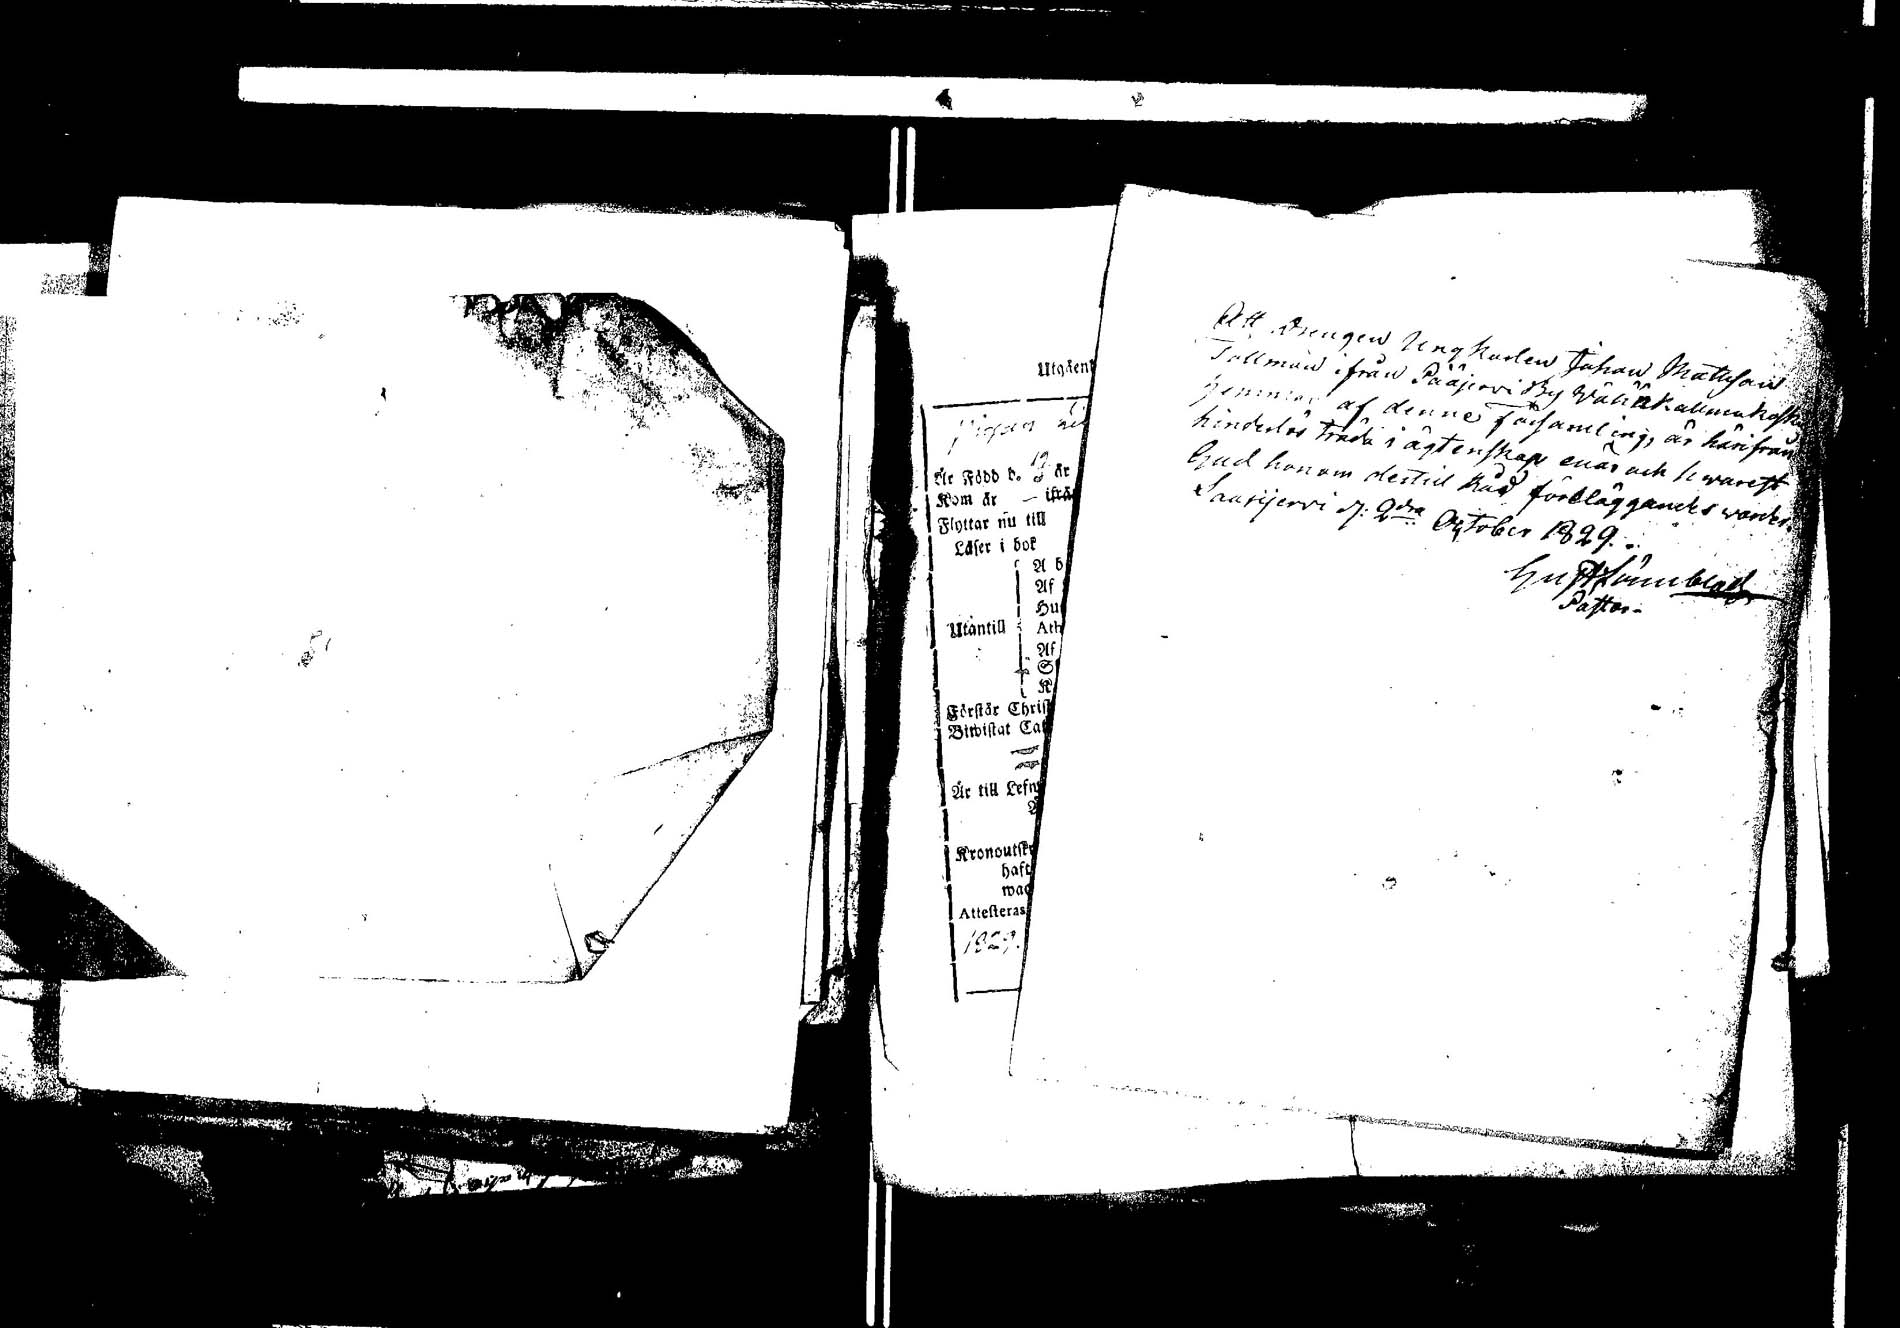 Utgåen
Pigan
Är Född d. 19 år
Kom år — ifrå
Flyttar nu till
Läser i bok
A b
Af
Hu
Utantill Ath
Af
S
K
Förstår Christ
Biwistat Cat
Är till Lefn
Kronoutskr
haft
wac
Attesteras
1829.
Att Drengen Ungkarlen Johan Mattsson
Tollman ifrån Pääjerwi By
hemman af denne Församling, är härifrån
hinderlös träda i ägtenskap enär och hwarest
Gud honom dertil Råd föreläggandes warder.
Saarijerwi d: 2dra October 1829.
Gust Lönnblad
Pastor.